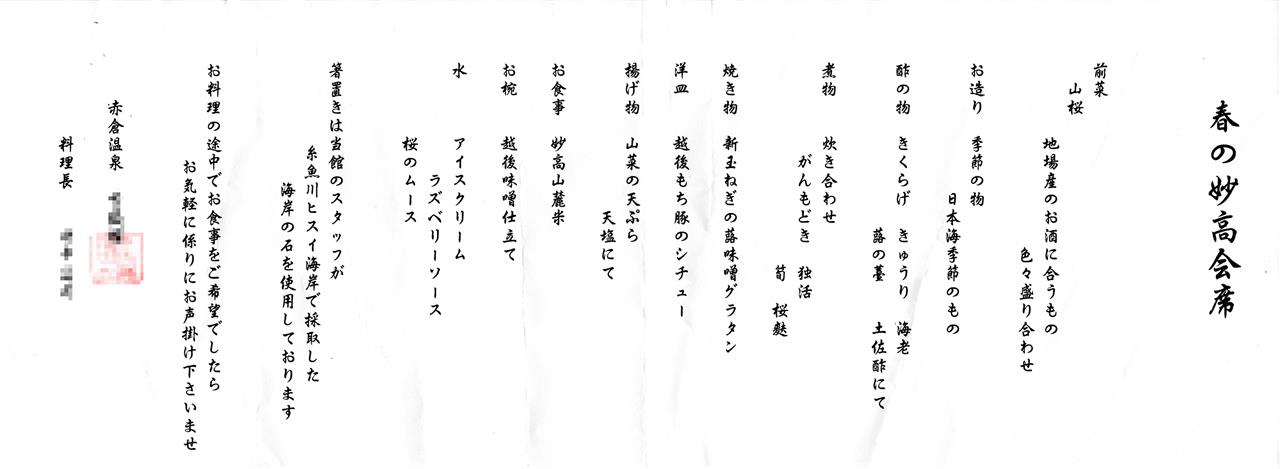 春の妙高会席
前菜
山桜
地場産のお酒に合うもの
色々盛り合わせ
お造り 季節の物
日本海季節のもの
酢の物 きくらげ きゅうり 海老
蕗の薹 土佐酢にて
煮物 炊き合わせ
がんもどき 独活
筍 桜麩
焼き物 新玉ねぎの蕗味噌グラタン
洋皿 越後もち豚のシチュー
揚げ物 山菜の天ぷら
天塩にて
お食事 妙高山麓米
お椀 越後味噌仕立て
水 アイスクリーム
ラズベリーソース
桜のムース
箸置きは当館のスタッフが
糸魚川ヒスイ海岸で採取した
海岸の石を使用しております
お料理の途中でお食事をご希望でしたら
お気軽に係りにお声掛け下さいませ
赤倉温泉
料理長